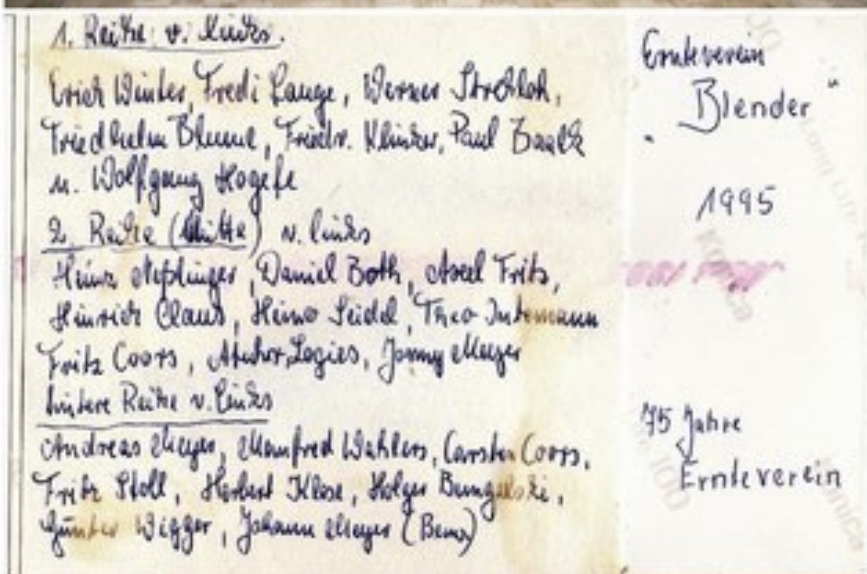 1. Reihe v. links.
Erich Winter, Fredi Lange, Werner Ströhloh,
Friedhelm Blume, Friedr. Klinker, Paul
u. Wolfgang Hogefe
2. Reihe (Mitte) v. links
Heinz, Daniel Both, Axel Fritz,
Hinrich Claus, Heino Seidel, Theo Intemann
Fritz Coors, Logies, Jonny Meyer
hintere Reihe v. links
Andreas Meyer, Manfred Wahlers, Carsten Coors,
Fritz Stoll, Herbert Klose, Holger,
Günter Wigger, Johann Meyer
Ernteverein
"Blender"
1995
75 Jahre
Ernteverein
Konica